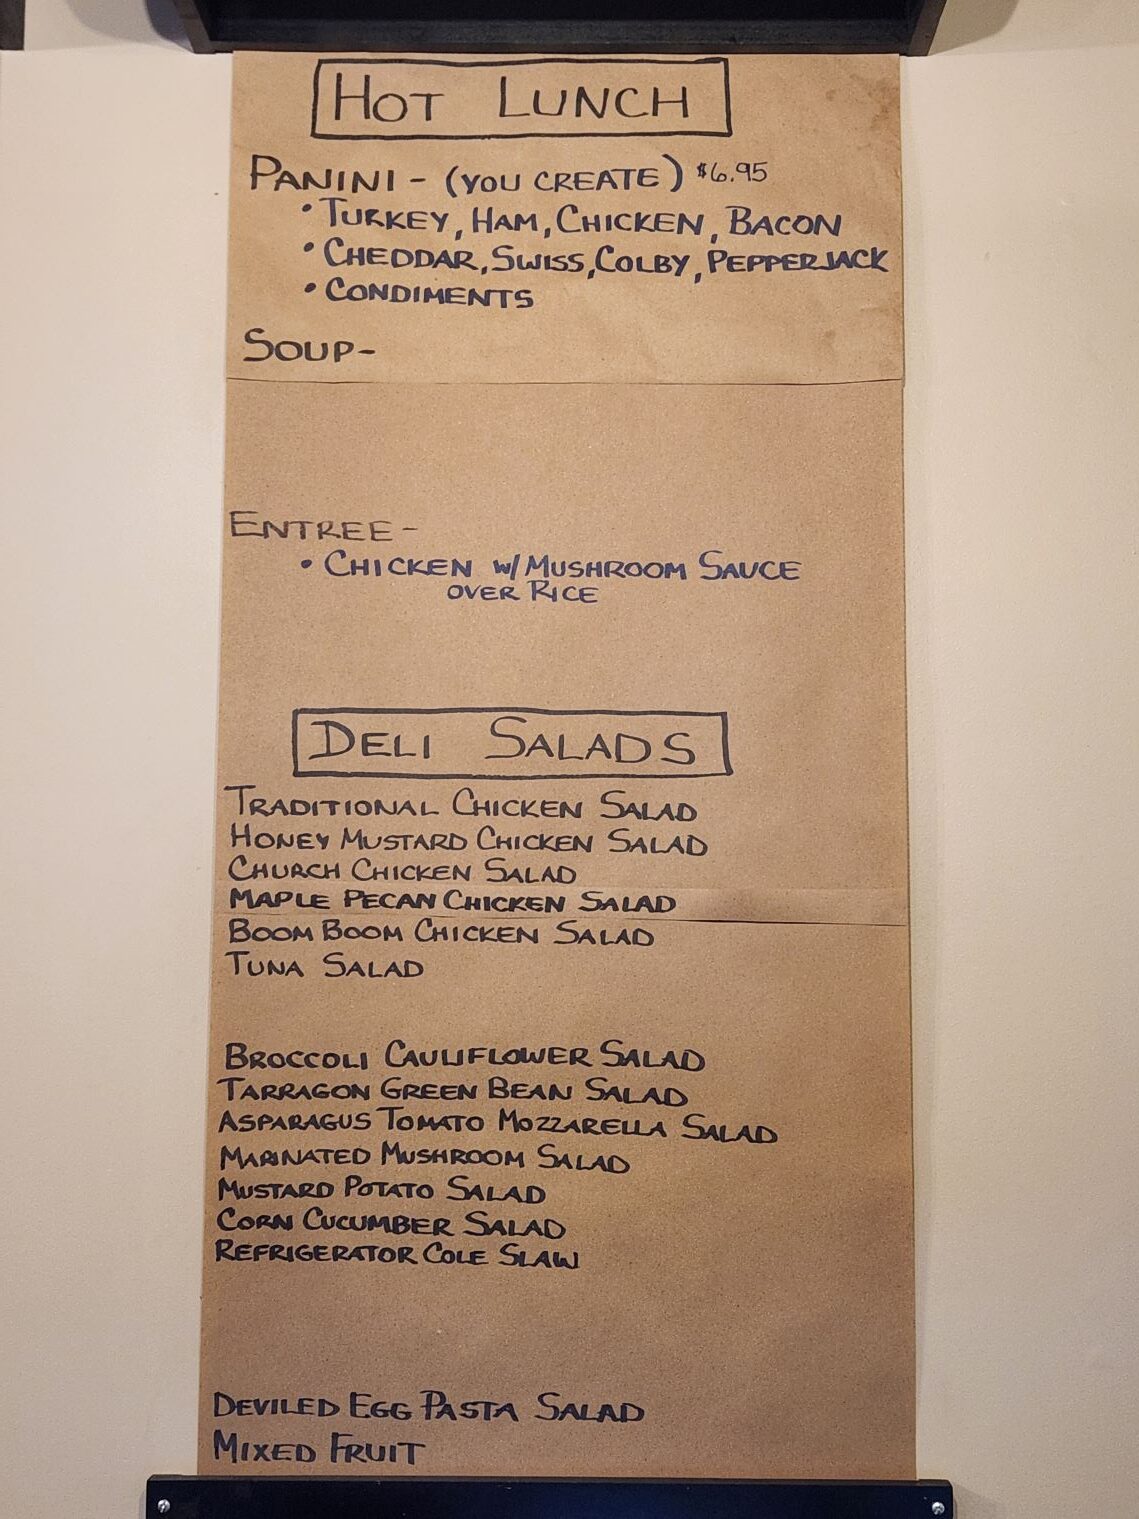 HOT LUNCH
PANINI - (YOU CREATE) $6.95
• TURKEY, HAM, CHICKEN, BACON
• CHEDDAR, SWISS, COLBY, PEPPERJACK
• CONDIMENTS
SOUP-
ENTREE-
• CHICKEN W/ MUSHROOM SAUCE
OVER RICE
DELI SALADS
TRADITIONAL CHICKEN SALAD
HONEY MUSTARD CHICKEN SALAD
CHURCH CHICKEN SALAD
MAPLE PECAN CHICKEN SALAD
BOOM BOOM CHICKEN SALAD
TUNA SALAD
BROCCOLI CAULIFLOWER SALAD
TARRAGON GREEN BEAN SALAD
ASPARAGUS TOMATO MOZZARELLA SALAD
MARINATED MUSHROOM SALAD
MUSTARD POTATO SALAD
CORN CUCUMBER SALAD
REFRIGERATOR COLE SLAW
DEVILED EGG PASTA SALAD
MIXED FRUIT